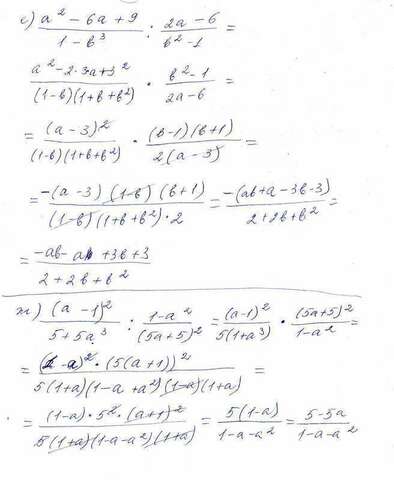 е) (a² - 6a + 9)/(1 - b³) : (2a - 6)/(b² - 1) =
(a² - 2·3a + 3²)/((1-b)(1+b+b²)) · (b² - 1)/(2a - 6) =
= (a - 3)²/((1-b)(1+b+b²)) · (b-1)(b+1)/(2(a - 3)) =
= -(a - 3)(1-b)(b+1)/((1-b)(1+b+b²)·2) = -(ab + a - 3b - 3)/(2 + 2b + b²) =
= (-ab - a + 3b + 3)/(2 + 2b + b²)
ж) (a - 1)²/(5 + 5a³) : (1 - a²)/(5a + 5)² = (a - 1)²/(5(1 + a³)) · (5a + 5)²/(1 - a²) =
= (1 - a)² · (5(a + 1))²/(5(1+a)(1 - a + a²)(1-a)(1+a)) =
= (1-a) · 5² · (a+1)²/(5(1+a)(1 - a - a²)(1+a)) = 5(1-a)/(1 - a - a²) = (5 - 5a)/(1 - a - a²)